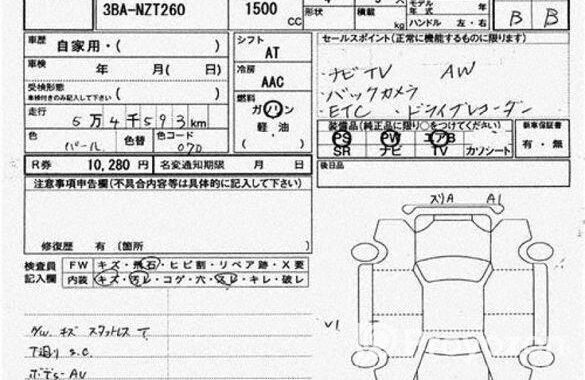 3BA-NZT260
1500 CC
形状
積載
kg
モデル年式
ハンドル 左・右
B B
車歴 自家用・( )
車検 年 月( 日)
受検形態
車検付きのみ記入して下さい ( )
走行 5万4千593km
色 パール 色替 色コード 070
シフト AT
冷房 AAC
燃料 ガソリン
軽油
(・ )
セールスポイント(正常に機能するものに限ります)
・ナビTV AW
・バックカメラ
・ETC ・ドライブレコーダー
装備品(純正品に限り○をつけてください)
PS PW エアB
SR ナビ TV カワシート
新車保証書
有・無
R券 10,280 円 名変通期限 月 日
後日品
注意事項申告欄(不具合内容等は具体的に記入して下さい)
修復歴 有(箇所
検査員記入欄 FW キズ・飛石・ヒビ割・リペア跡・X要
内装 キズ・汚レ・コゲ・穴・スレ・キレ・破レ
ズリA A1
キズ スタットレス
下廻り S.C.